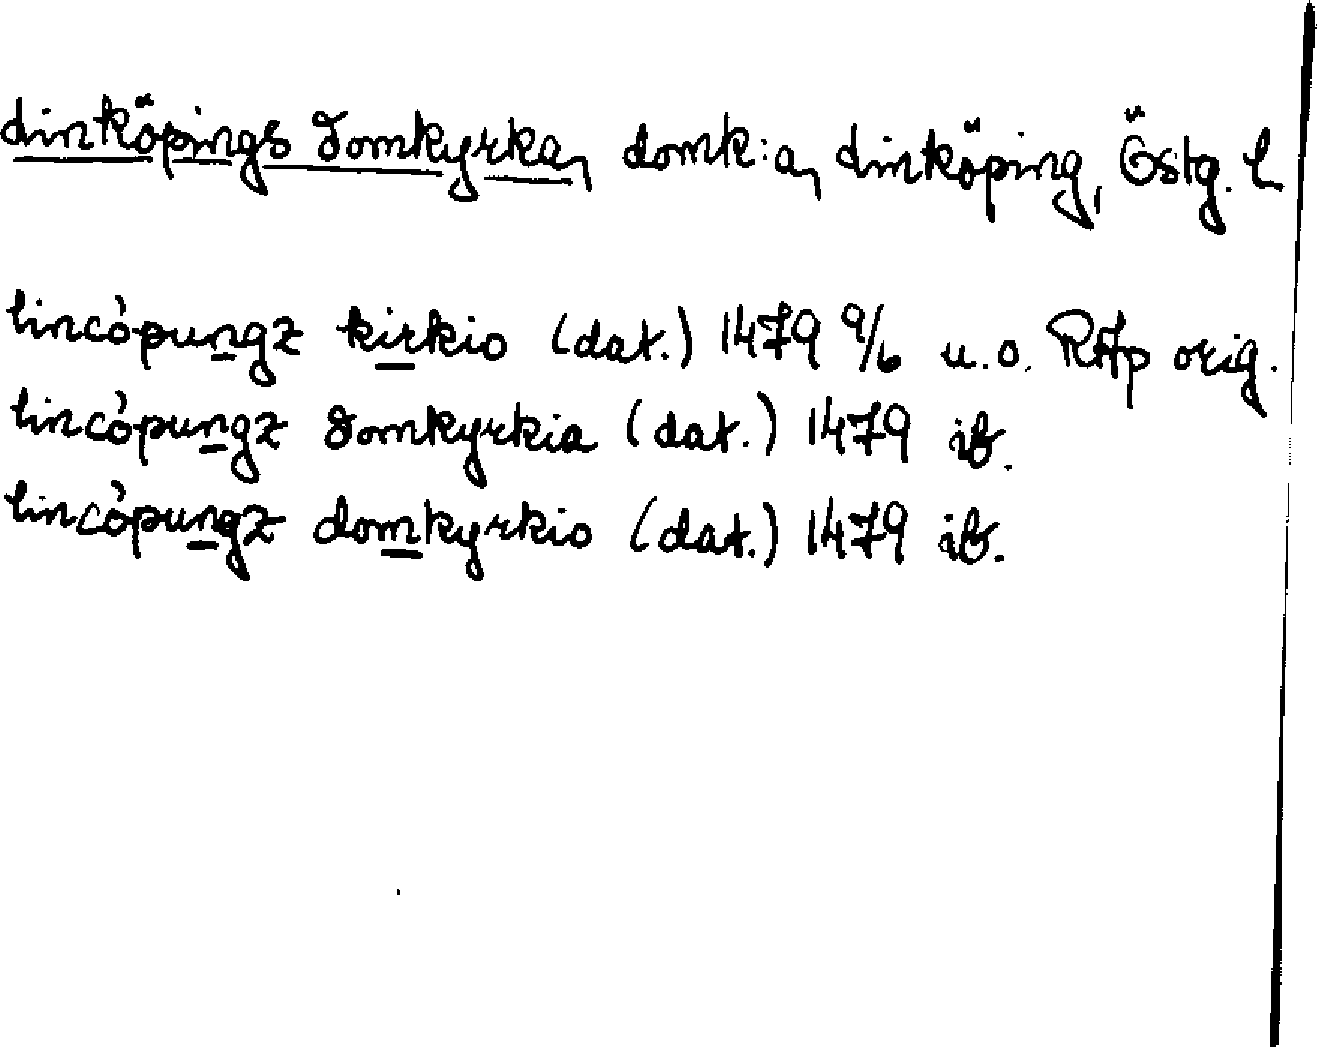 Linköpings domkyrka, domk:a, Linköping, Östg. l
lincópungz kirkio (dat.) 1479 9/6 u.o. RAp orig.
lincópungz domkyrkia (dat.) 1479 ib.
lincópungz domkyrkio (dat.) 1479 ib.